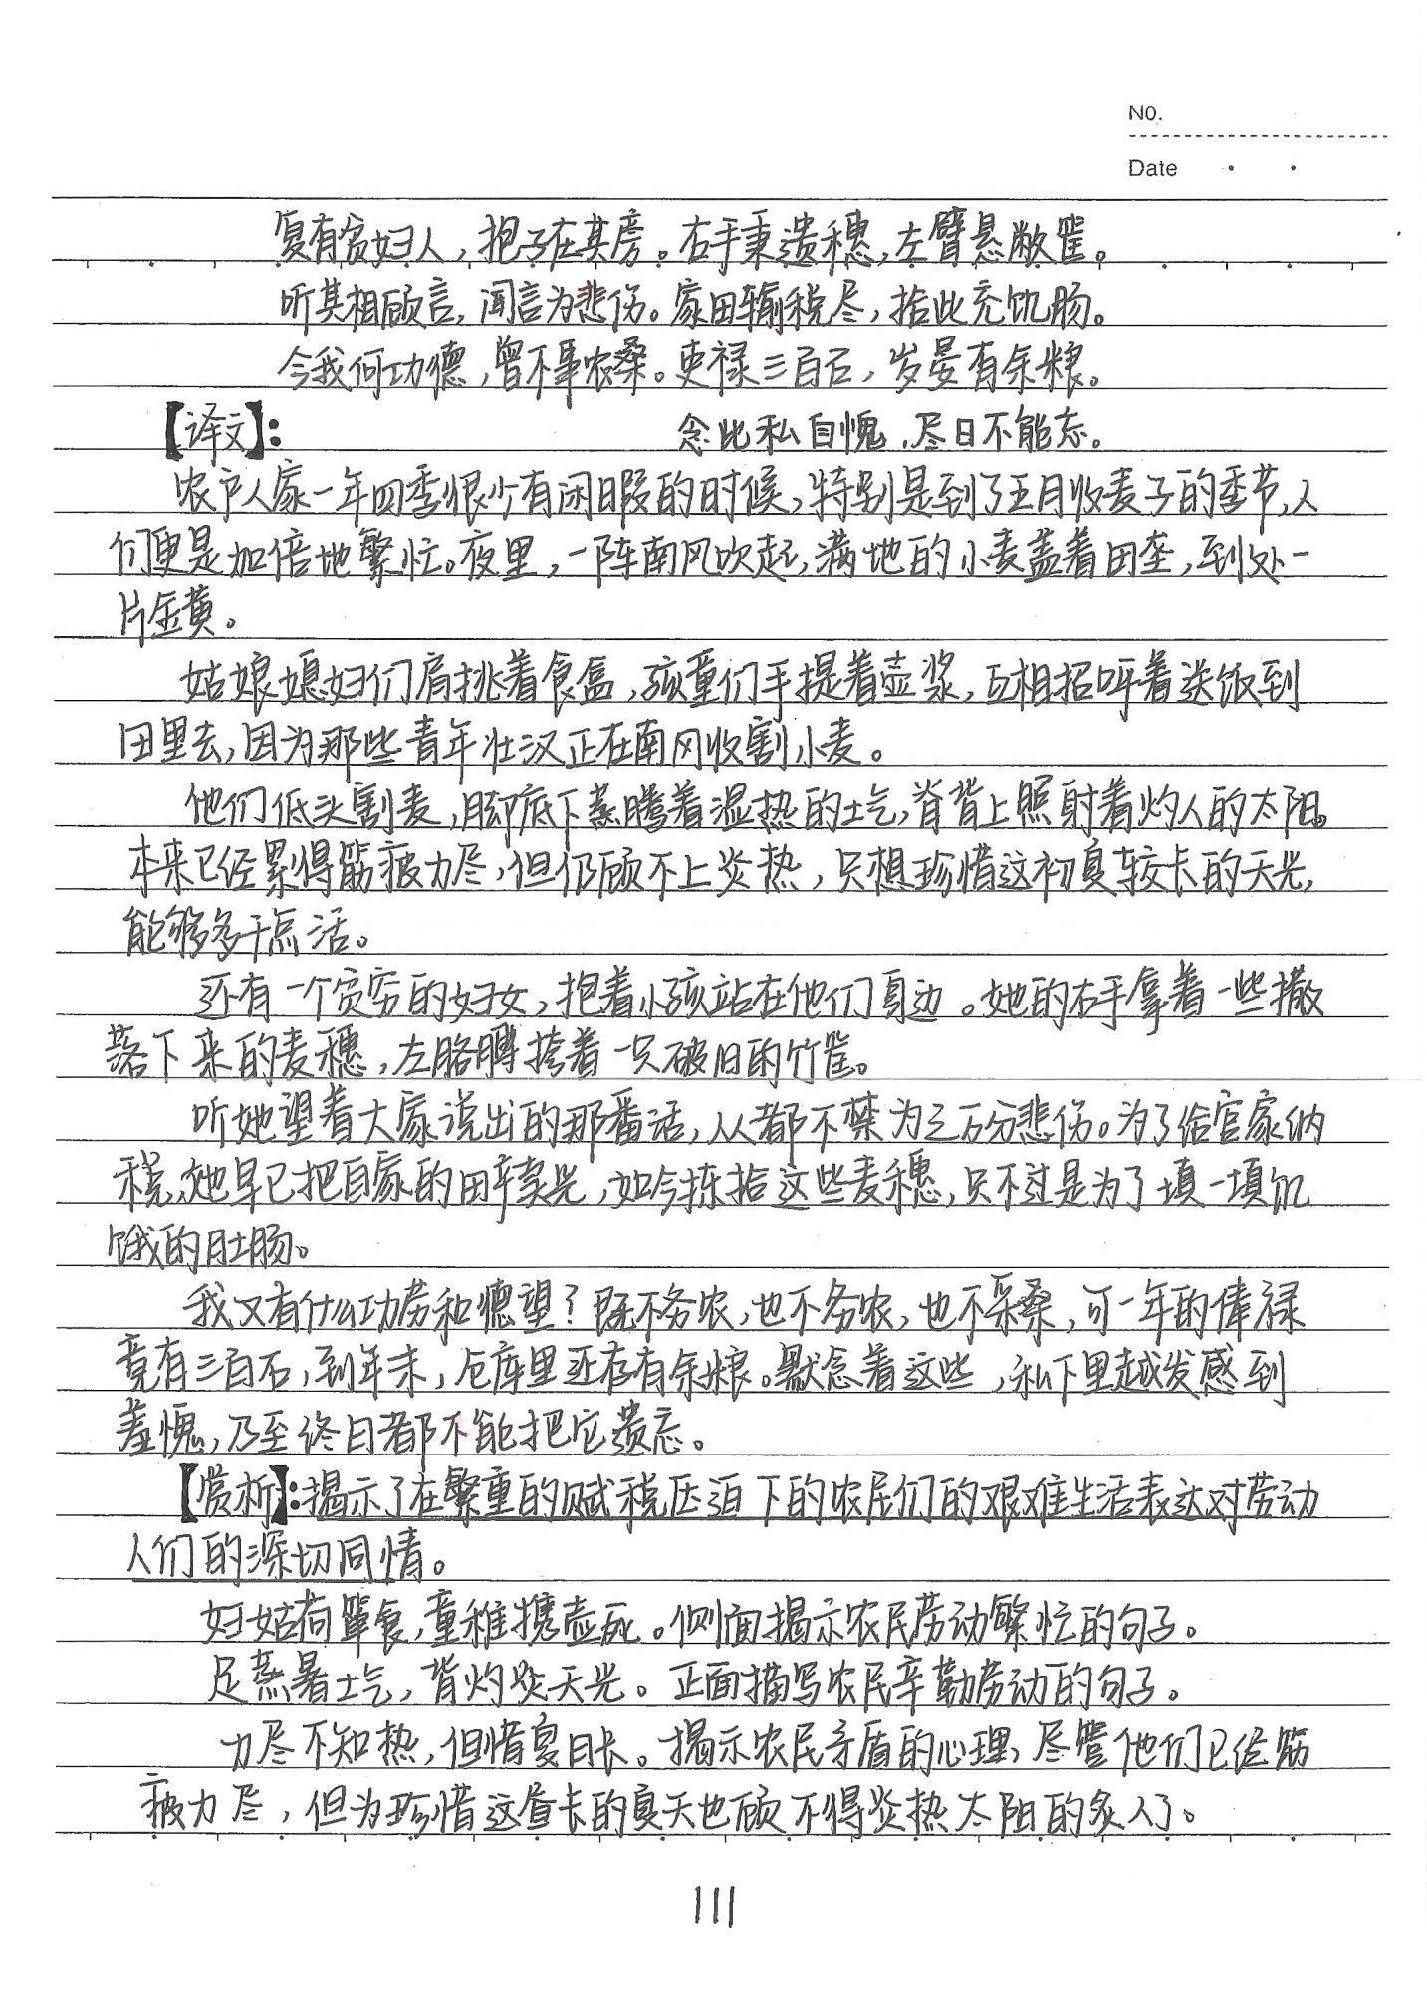 No.
Date
复有贫妇人，抱子在其旁。右手秉遗穗，左臂悬敝筐。
听其相顾言，闻言为悲伤。家田输税尽，拾此充饥肠。
今我何功德，曾不事农桑。吏禄三百石，岁晏有余粮。
【译文】：念此私自愧，尽日不能忘。
农户人家一年四季很少有闲暇的时候，特别是到了五月收麦子的季节，人
们更是加倍地繁忙。夜里，一阵南风吹起，满地的小麦盖着田垄，到处一
片金黄。
姑娘媳妇们肩挑着食盒，孩童们手提着壶浆，互相招呼着送饭到
田里去，因为那些青年壮汉正在南冈收割小麦。
他们低头割麦，脚底下蒸腾着湿热的土气，脊背上照射着灼人的太阳。
本来已经累得筋疲力尽，但仍顾不上炎热，只想珍惜这初夏较长的天光，
能够多干点活。
还有一个贫穷的妇女，抱着小孩站在他们身边。她的右手拿着一些撒
落下来的麦穗，左胳膊挎着一只破旧的竹筐。
听她望着大家说出的那番话，人人都不禁为之万分悲伤。为了给官家纳
税，她早已把自家的田卖光，如今拣拾这些麦穗，只不过是为了填一填饥
饿的肚肠。
我又有什么功劳和德望？既不务农，也不务农，也不采桑，可一年的俸禄
竟有三百石，到年末，仓库里还存有余粮。默念着这些，私下里越发感到
羞愧，乃至终日都不能把它遗忘。
【赏析】：揭示了在繁重的赋税压迫下的农民们的艰难生活表达对劳动
人们的深切同情。
妇姑荷箪食，童稚携壶浆。侧面揭示农民劳动繁忙的句子。
足蒸暑土气，背灼炎天光。正面描写农民辛勤劳动的句子。
力尽不知热，但惜夏日长。揭示农民矛盾的心理，尽管他们已经筋
疲力尽，但为珍惜这昼长的夏天也顾不得炎热太阳的炙人了。
111